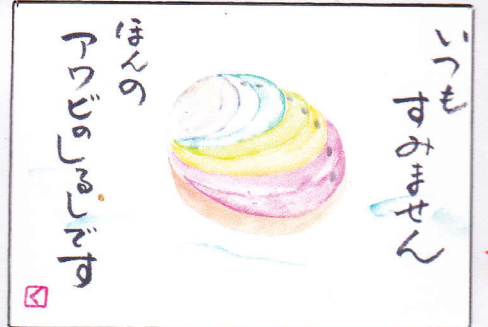 いつも
すみません
ほんの
アワビのしるしです
く